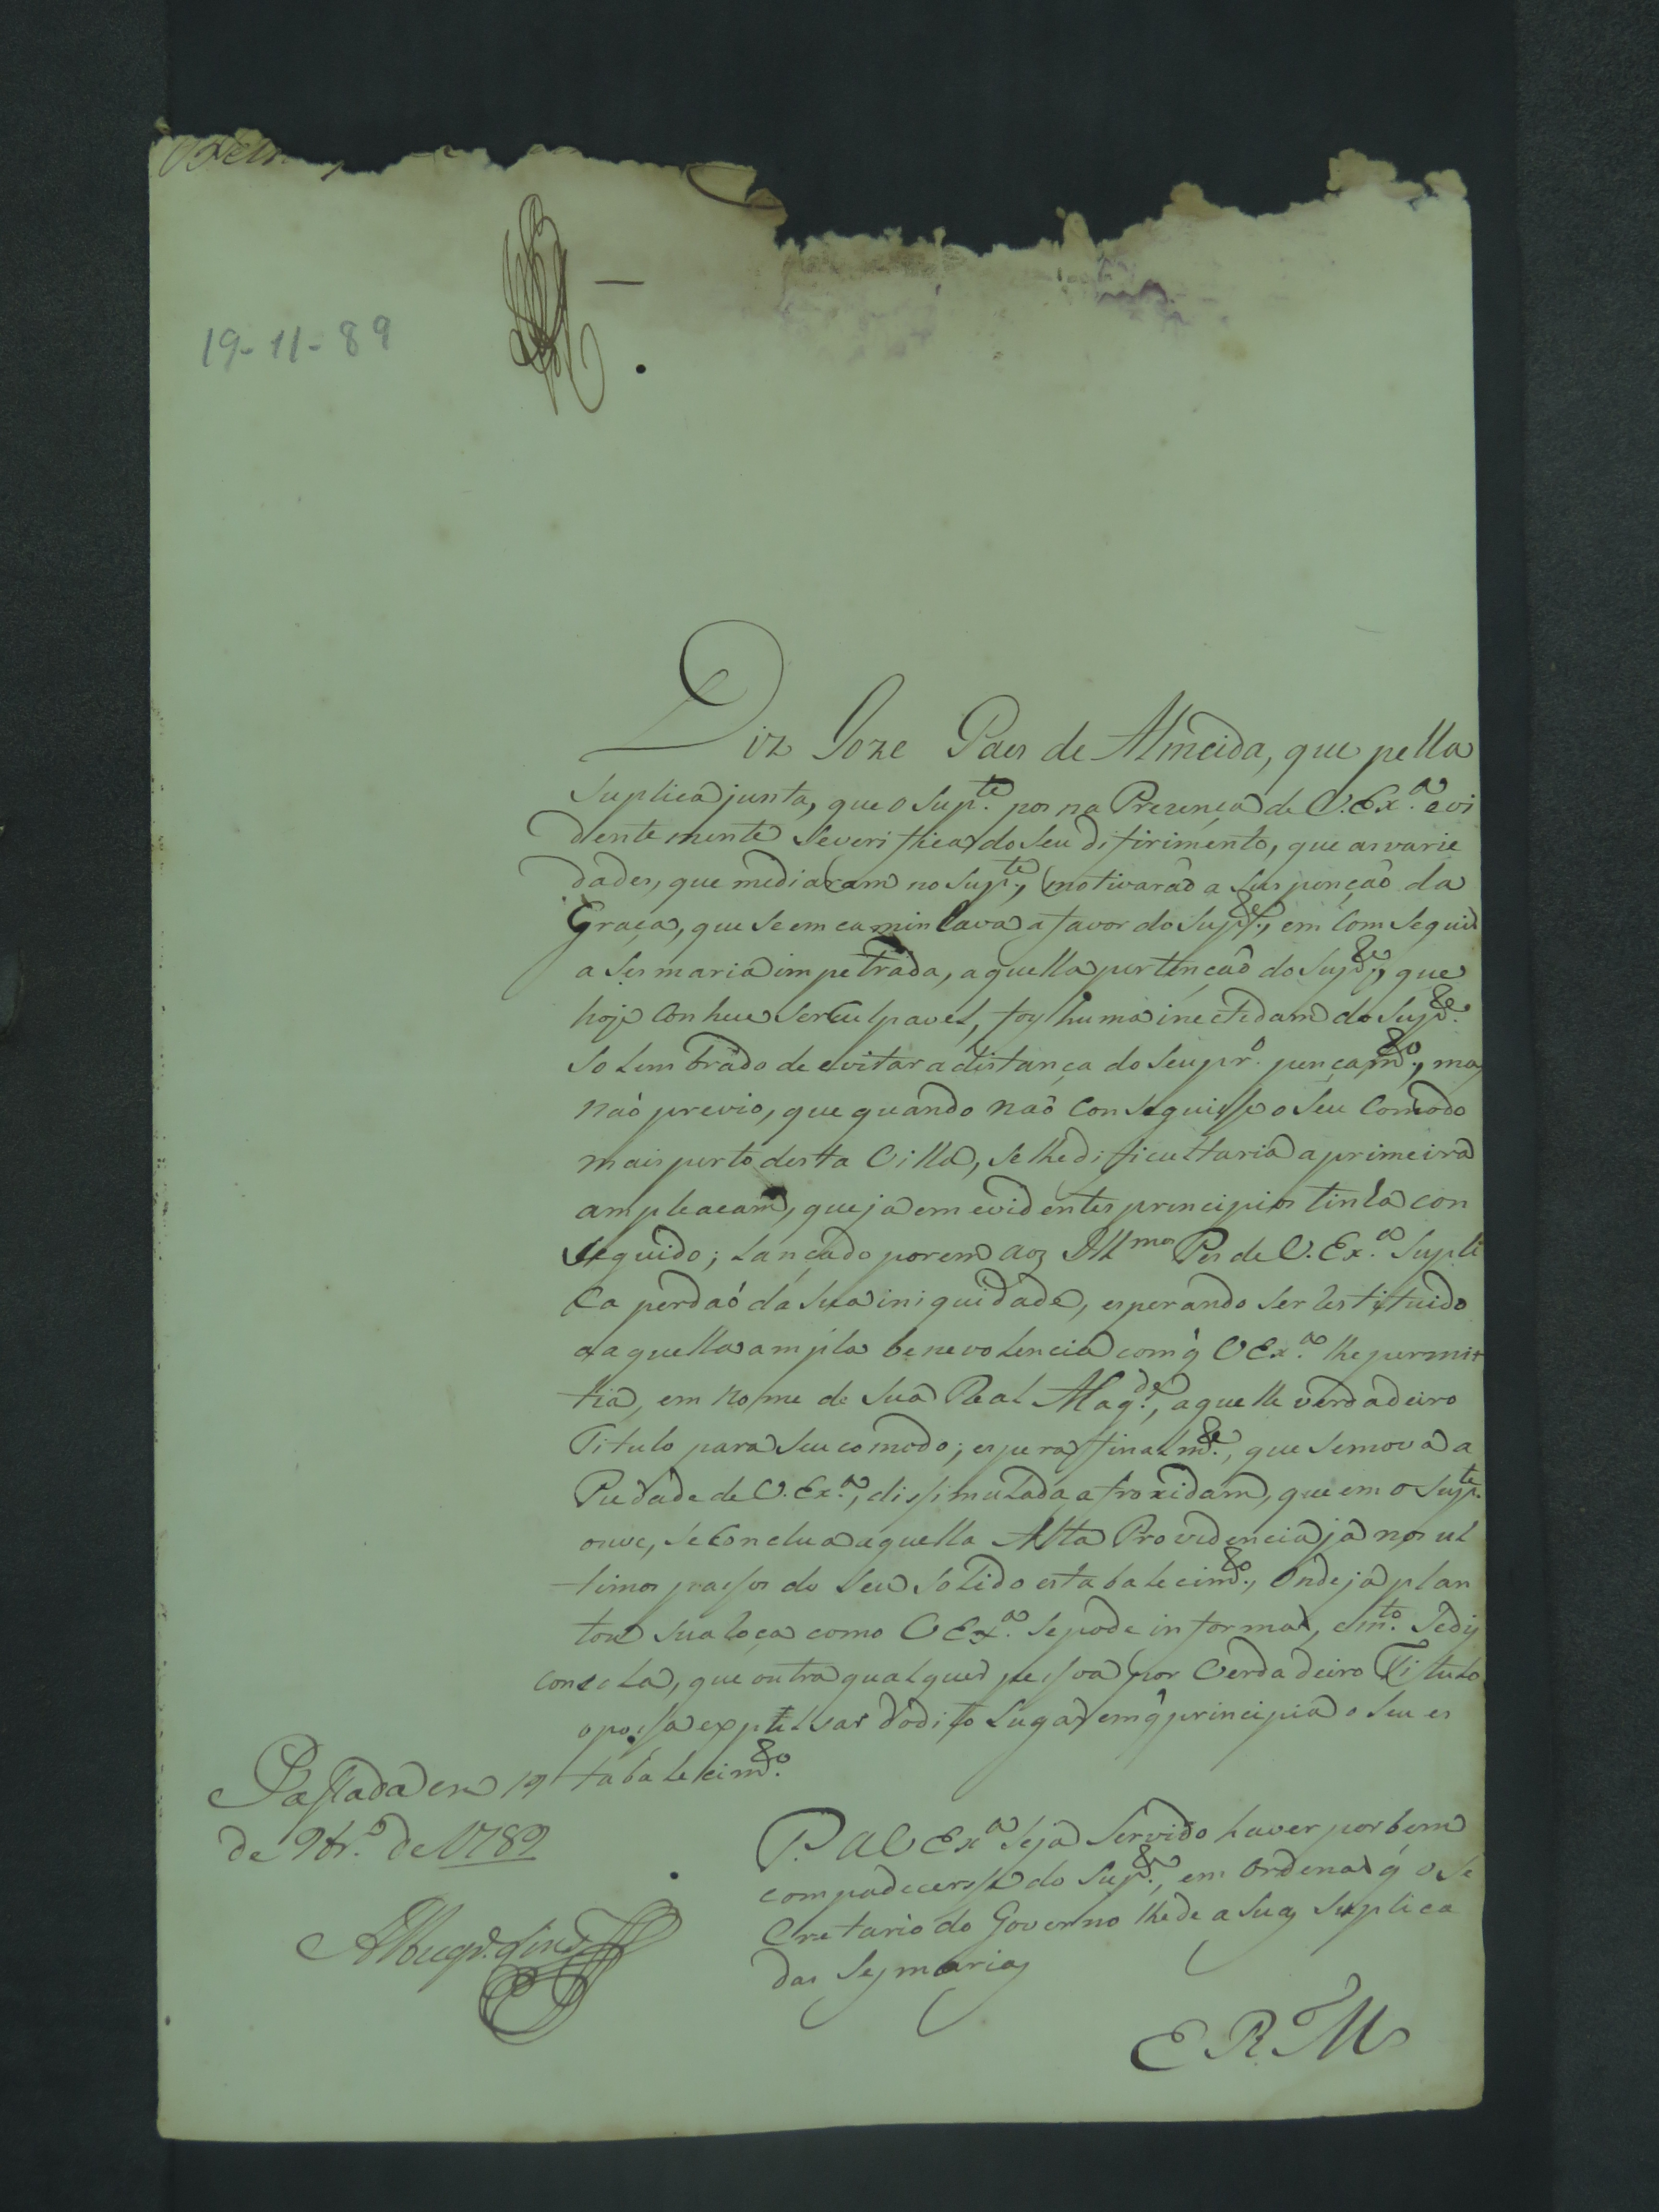 19-11-89
Diz Joze Paes de Almeida, que pella
suplica junta, que o Sup.te pos na Prezença de V. Ex.a evi
dentemente se verifica do seu difirimento, que as varie
dades, que mediaram no Sup.te, motivaraõ a suspenção da
Graça, que se emcaminhava a favor do Sup.te, em comseguir
a Sesmaria impetrada, aquella pertenção do Sup.te, que
hoje conhece ser culpavel, foy huma inectidam do Sup.te
so lembrado de evitar a distança do seu pr.o pençam.to, mas
naõ previo, que quando naõ conseguisse o seu comodo
mais perto desta Villa, se lhe dificultaria a primeira
ampleacam, que ja em evidentes principios tinha con
seguido; Lançado porem aos Ill.mos Pes de V. Ex.a Supli
ca perdaõ da sua iniquidade, esperando ser restituido
a aquella ampla benevolencia com q̃ V Ex.a lhe permit
tia, em nome de Sua Real Mag.de, aquelle verdadeiro
Titulo para seu comodo; espera finalm.te, que se mova a
Piedade de V. Ex.a, dissimulada a froxidam, que em o Sup.te
ouve, se conclua aquella Alta Providencia ja nos ul
timos passos do seu solido estabalecim.to, onde ja plan
tou sua roça como V Ex.a se pode informar, e m.to se dis
consola, que outra qualquer pessoa por verdadeiro Titulo
o possa expulsar do dito Lugar em q̃ principia o seu es
tabalecim.to
Passada em 19
de 9br.o de 1789
P. a V Ex.a seja servido haver por bem
compadecersse do Sup.te, em ordenar q̃ o Se
cretario do Governo lhe de a sua suplica
da Sesmaria
E R M